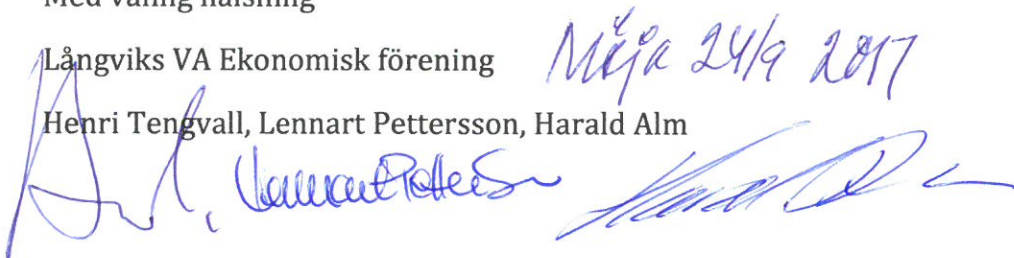 Med vänlig hälsning
Långviks VA Ekonomisk förening
Möja 24/9 2017
Henri Tengvall, Lennart Pettersson, Harald Alm
Lennart Pettersson